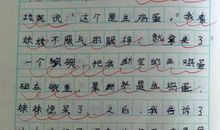 地说：这个是生鸡蛋。我看
妹妹不服气的眼神，就拿来了
一个碗，把我断定的生鸡蛋
磕在碗里，果断然是生鸡蛋，
妹妹惊呆了，之后，我告诉了